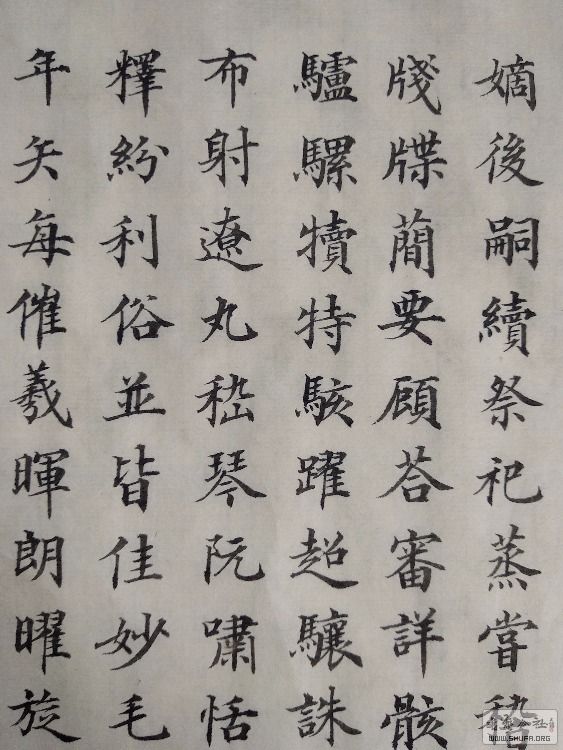 嫡後嗣續祭祀蒸嘗稽
牋牒蕳要顧荅審詳骸
驢騾犢特駭躍超驤誅
布射遼丸嵇琴阮嘯恬
釋紛利俗並皆佳妙毛
年矢每催羲暉朗曜旋
WWW.SHUFA.ORG